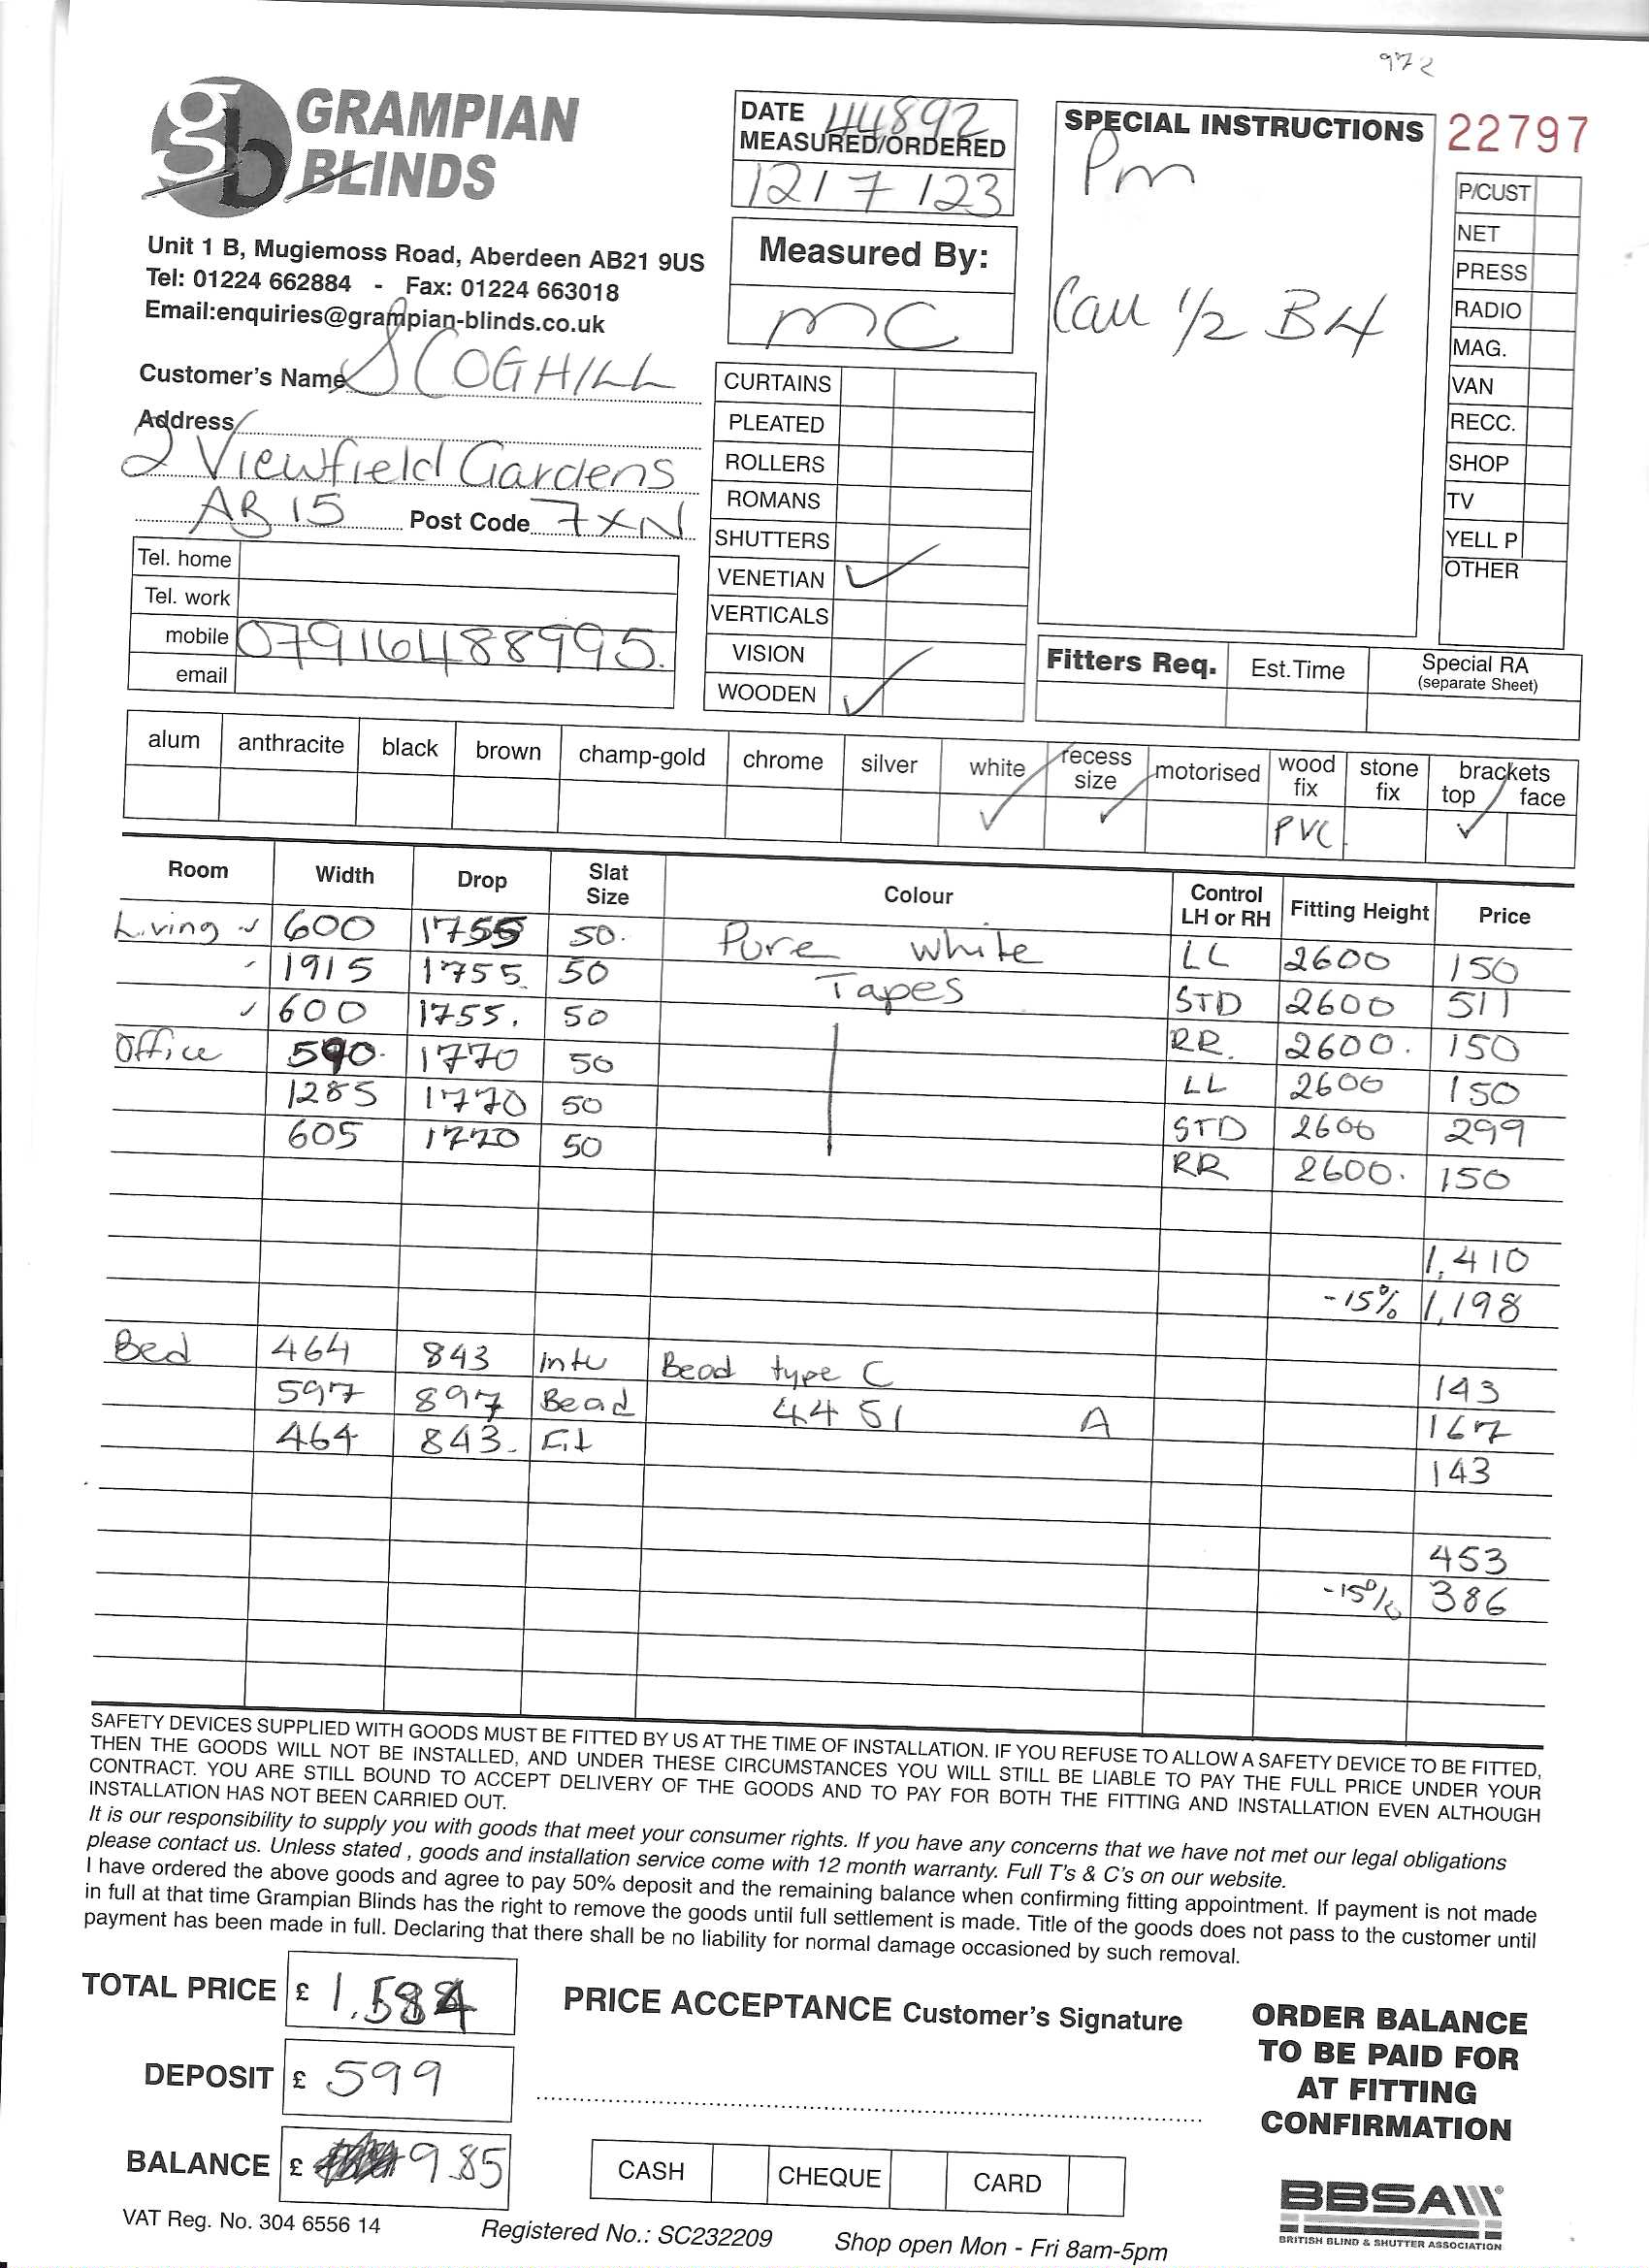 972
GRAMPIAN
BLINDS
Unit 1 B, Mugiemoss Road, Aberdeen AB21 9US
Tel: 01224 662884 - Fax: 01224 663018
Email:enquiries@grampian-blinds.co.uk
DATE 44892
MEASURED/ORDERED
12/7/23
Measured By:
MC
SPECIAL INSTRUCTIONS
Pm
Call 1/2 B4
22797
P/CUST
NET
PRESS
RADIO
MAG.
VAN
RECC.
SHOP
TV
YELL P
OTHER
Customer's Name S COGHILL
Address
2 Viewfield Gardens
AB15 Post Code 7XN
Tel. home
Tel. work
mobile 07916488995.
email
CURTAINS
PLEATED
ROLLERS
ROMANS
SHUTTERS
VENETIAN ✓
VERTICALS
VISION
WOODEN ✓
Fitters Req. Est.Time Special RA
(separate Sheet)
alum anthracite black brown champ-gold chrome silver white recess size motorised wood fix stone fix brackets top face
✓ ✓ PVC ✓
Room Width Drop Slat Size Colour Control LH or RH Fitting Height Price
Living ✓ 600 1755 50. Pure white LL 2600 150
1915 1755. 50 Tapes STD 2600 511
✓ 600 1755. 50 RR. 2600. 150
Office 590. 1770 50 LL 2600 150
1285 1770 50 STD 2600 299
605 1770 50 RR 2600. 150
1,410
-15% 1,198
Bed 464 843 Intu Bead type C 143
597 897 Bead 4451 A 167
464 843. Fit 143
453
-15% 386
SAFETY DEVICES SUPPLIED WITH GOODS MUST BE FITTED BY US AT THE TIME OF INSTALLATION. IF YOU REFUSE TO ALLOW A SAFETY DEVICE TO BE FITTED,
THEN THE GOODS WILL NOT BE INSTALLED, AND UNDER THESE CIRCUMSTANCES YOU WILL STILL BE LIABLE TO PAY THE FULL PRICE UNDER YOUR
CONTRACT. YOU ARE STILL BOUND TO ACCEPT DELIVERY OF THE GOODS AND TO PAY FOR BOTH THE FITTING AND INSTALLATION EVEN ALTHOUGH
INSTALLATION HAS NOT BEEN CARRIED OUT.
It is our responsibility to supply you with goods that meet your consumer rights. If you have any concerns that we have not met our legal obligations
please contact us. Unless stated , goods and installation service come with 12 month warranty. Full T's & C's on our website.
I have ordered the above goods and agree to pay 50% deposit and the remaining balance when confirming fitting appointment. If payment is not made
in full at that time Grampian Blinds has the right to remove the goods until full settlement is made. Title of the goods does not pass to the customer until
payment has been made in full. Declaring that there shall be no liability for normal damage occasioned by such removal.
TOTAL PRICE £ 1,584
DEPOSIT £ 599
BALANCE £ 985
PRICE ACCEPTANCE Customer's Signature
CASH CHEQUE CARD
ORDER BALANCE
TO BE PAID FOR
AT FITTING
CONFIRMATION
BBSA
BRITISH BLIND & SHUTTER ASSOCIATION
VAT Reg. No. 304 6556 14
Registered No.: SC232209
Shop open Mon - Fri 8am-5pm